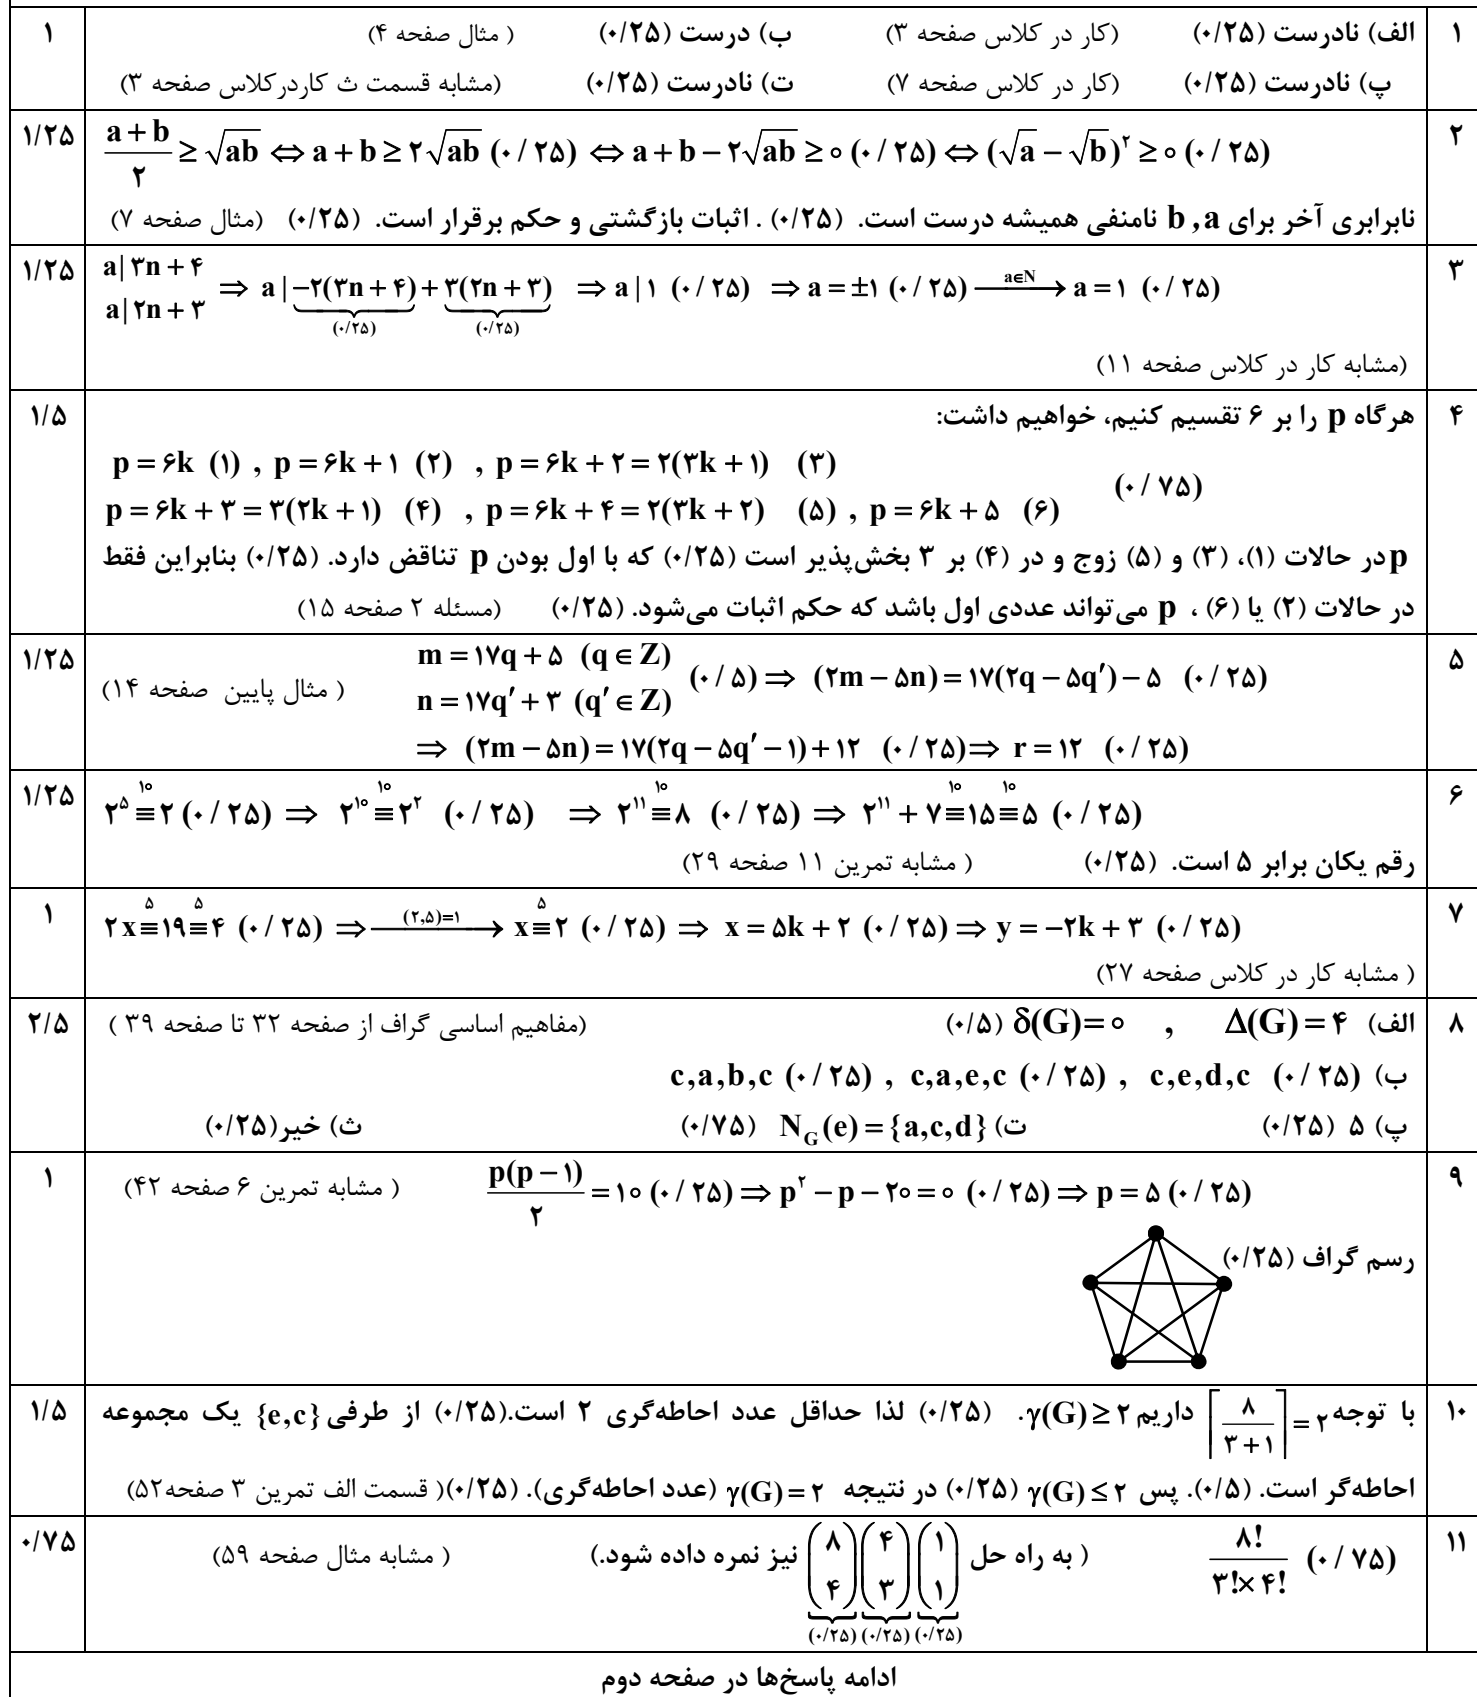 ۱ الف) نادرست (۰/۲۵) (کار در کلاس صفحه ۳) ب) درست (۰/۲۵) ( مثال صفحه ۴) ۱
پ) نادرست (۰/۲۵) (کار در کلاس صفحه ۷) ت) نادرست (۰/۲۵) (مشابه قسمت ث کاردرکلاس صفحه ۳)
۲ (a+b)/۲ ≥ √ab ⇔ a + b ≥ ۲√ab (۰/۲۵) ⇔ a + b − ۲√ab ≥ ۰ (۰/۲۵) ⇔ (√a − √b)^۲ ≥ ۰ (۰/۲۵) ۱/۲۵
نابرابری آخر برای b , a نامنفی همیشه درست است. (۰/۲۵) . اثبات بازگشتی و حکم برقرار است. (۰/۲۵) (مثال صفحه ۷)
۳ a|۳n+۴ , a|۲n+۳ ⇒ a|−۲(۳n+۴) (۰/۲۵) + ۳(۲n+۳) (۰/۲۵) ⇒ a|۱ (۰/۲۵) ⇒ a = ±۱ (۰/۲۵) —a∈N→ a = ۱ (۰/۲۵) ۱/۲۵
(مشابه کار در کلاس صفحه ۱۱)
۴ هرگاه p را بر ۶ تقسیم کنیم، خواهیم داشت: ۱/۵
p = ۶k (۱) , p = ۶k+۱ (۲) , p = ۶k+۲ = ۲(۳k+۱) (۳)
(۰/۷۵)
p = ۶k+۳ = ۳(۲k+۱) (۴) , p = ۶k+۴ = ۲(۳k+۲) (۵) , p = ۶k+۵ (۶)
p در حالات (۱)، (۳) و (۵) زوج و در (۴) بر ۳ بخش‌پذیر است (۰/۲۵) که با اول بودن p تناقض دارد. (۰/۲۵) بنابراین فقط
در حالات (۲) یا (۶) ، p می‌تواند عددی اول باشد که حکم اثبات می‌شود. (۰/۲۵) (مسئله ۲ صفحه ۱۵)
۵ m = ۱۷q+۵ (q∈Z) , n = ۱۷q′+۳ (q′∈Z) (۰/۵) ⇒ (۲m−۵n) = ۱۷(۲q−۵q′)−۵ (۰/۲۵) ( مثال پایین صفحه ۱۴) ۱/۲۵
⇒ (۲m−۵n) = ۱۷(۲q−۵q′−۱)+۱۲ (۰/۲۵) ⇒ r = ۱۲ (۰/۲۵)
۶ ۲^۵ ≡(۱۰) ۲ (۰/۲۵) ⇒ ۲^۱۰ ≡(۱۰) ۲^۲ (۰/۲۵) ⇒ ۲^۱۱ ≡(۱۰) ۸ (۰/۲۵) ⇒ ۲^۱۱+۷ ≡(۱۰) ۱۵ ≡(۱۰) ۵ (۰/۲۵) ۱/۲۵
رقم یکان برابر ۵ است. (۰/۲۵) ( مشابه تمرین ۱۱ صفحه ۲۹)
۷ ۲x ≡(۵) ۱۹ ≡(۵) ۴ (۰/۲۵) ⇒ —(۲,۵)=۱→ x ≡(۵) ۲ (۰/۲۵) ⇒ x = ۵k+۲ (۰/۲۵) ⇒ y = −۲k+۳ (۰/۲۵) ۱
( مشابه کار در کلاس صفحه ۲۷)
۸ الف) Δ(G) = ۴ , δ(G) = ۰ (۰/۵) (مفاهیم اساسی گراف از صفحه ۳۲ تا صفحه ۳۹ ) ۲/۵
ب) c,a,b,c (۰/۲۵) , c,a,e,c (۰/۲۵) , c,e,d,c (۰/۲۵)
پ) ۵ (۰/۲۵) ت) N_G(e) = {a,c,d} (۰/۷۵) ث) خیر(۰/۲۵)
۹ p(p−۱)/۲ = ۱۰ (۰/۲۵) ⇒ p^۲ − p − ۲۰ = ۰ (۰/۲۵) ⇒ p = ۵ (۰/۲۵) ( مشابه تمرین ۶ صفحه ۴۲) ۱
رسم گراف (۰/۲۵)
۱۰ با توجه ⌈۸/(۳+۱)⌉ = ۲ داریم γ(G) ≥ ۲. (۰/۲۵) لذا حداقل عدد احاطه‌گری ۲ است.(۰/۲۵) از طرفی {e,c} یک مجموعه ۱/۵
احاطه‌گر است. (۰/۵). پس γ(G) ≤ ۲ (۰/۲۵) در نتیجه γ(G) = ۲ (عدد احاطه‌گری). (۰/۲۵)( قسمت الف تمرین ۳ صفحه۵۲)
۱۱ ۸!/(۳!×۴!) (۰/۷۵) ( به راه حل (۸ ۴) (۰/۲۵) (۴ ۳) (۰/۲۵) (۱ ۱) (۰/۲۵) نیز نمره داده شود.) ( مشابه مثال صفحه ۵۹) ۰/۷۵
ادامه پاسخ‌ها در صفحه دوم